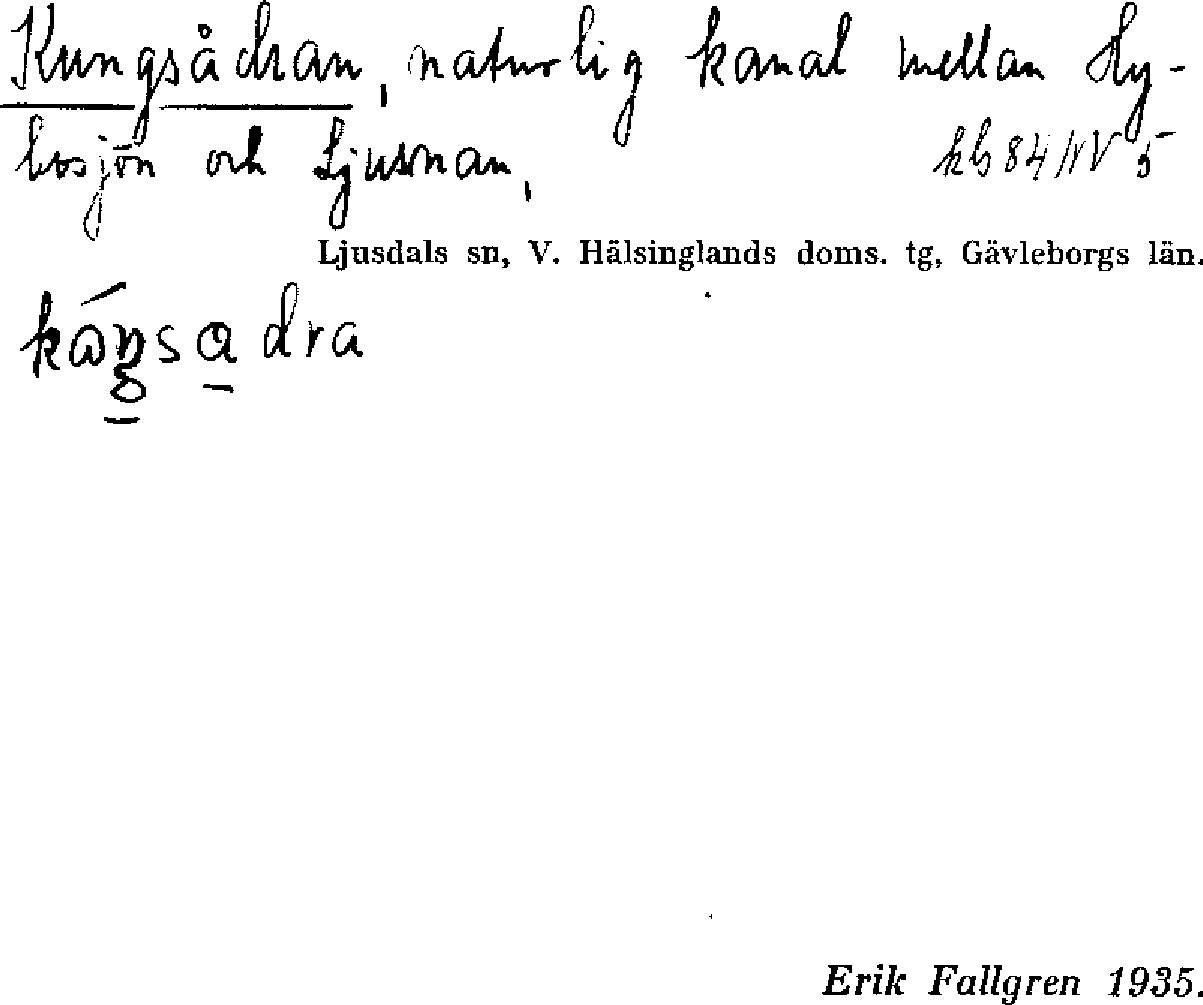 Kungsådran, naturlig kanal mellan Hy-
bosjön och Ljusnan,
kb 84 NV 5
Ljusdals sn, V. Hälsinglands doms. tg, Gävleborgs län.
Erik Fallgren 1935.